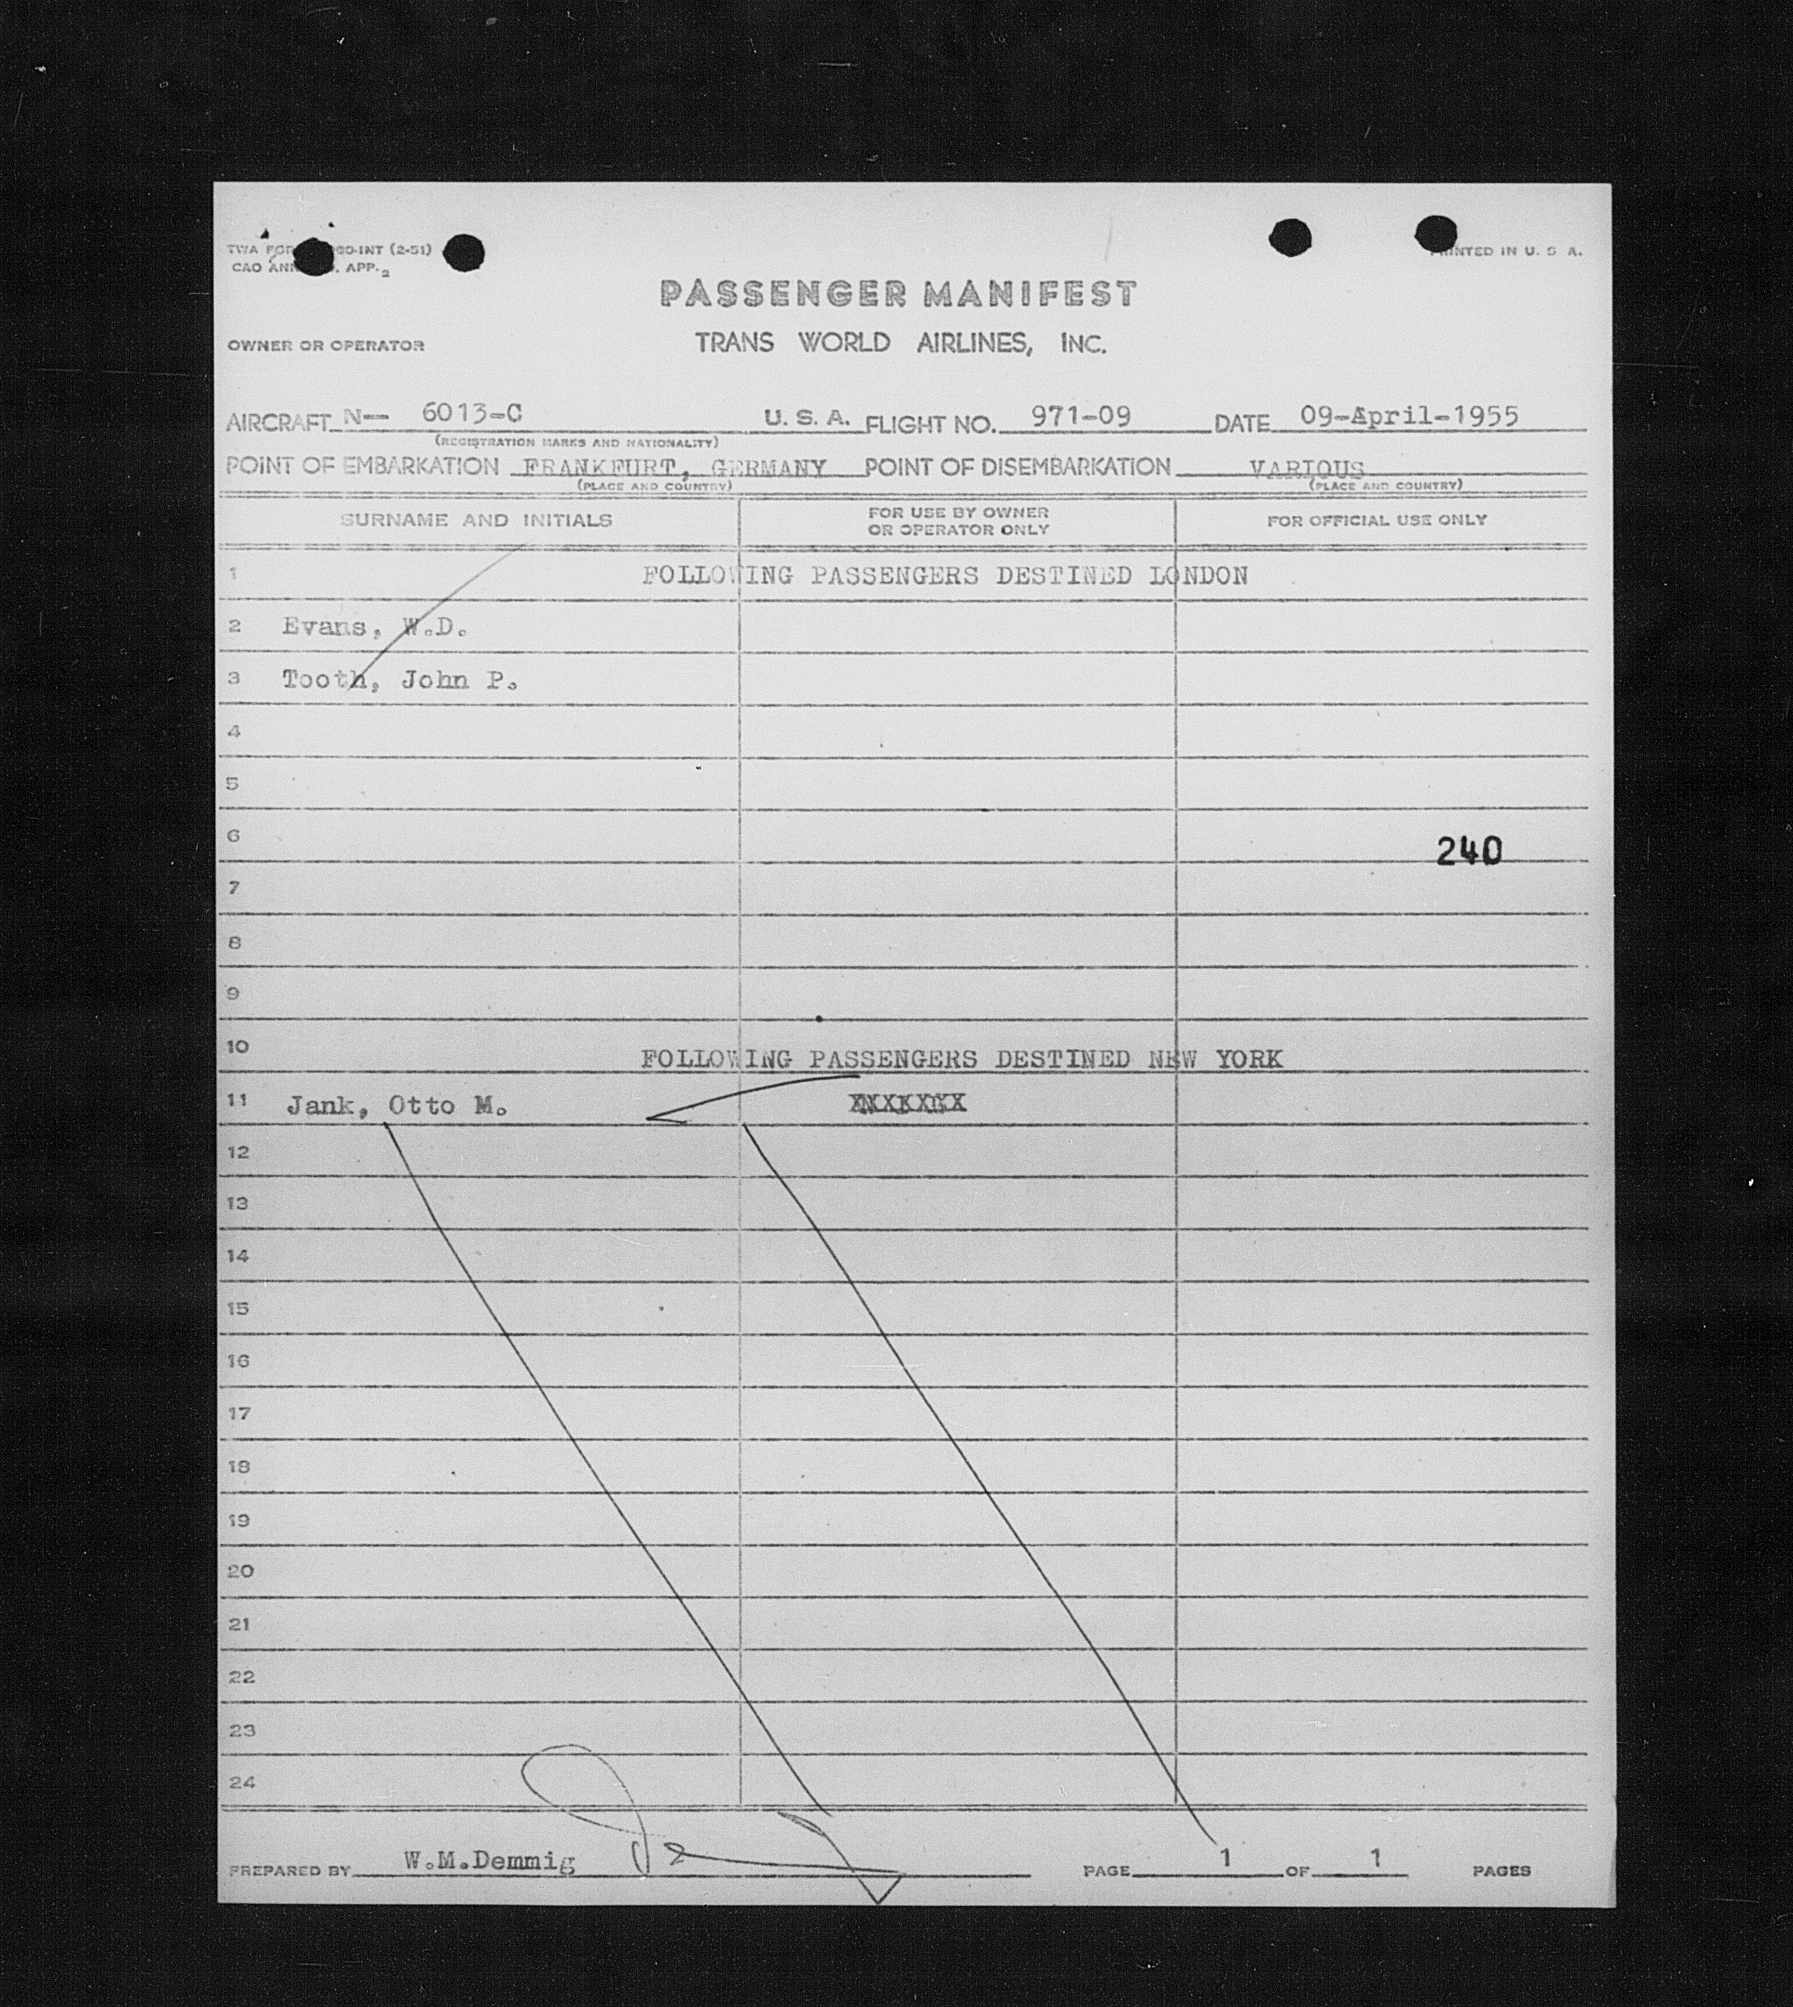 TWA FOR 960-INT (2-51)
PRINTED IN U. S. A.
CAO ANN . APP. 2
PASSENGER MANIFEST
OWNER OR OPERATOR TRANS WORLD AIRLINES, INC.
AIRCRAFT N— 6013-C U. S. A. FLIGHT NO. 971-09 DATE 09-April-1955
(REGISTRATION MARKS AND NATIONALITY)
POINT OF EMBARKATION FRANKFURT, GERMANY POINT OF DISEMBARKATION VARIOUS
(PLACE AND COUNTRY) (PLACE AND COUNTRY)
SURNAME AND INITIALS FOR USE BY OWNER OR OPERATOR ONLY FOR OFFICIAL USE ONLY
1 FOLLOWING PASSENGERS DESTINED LONDON
2 Evans, W.D.
3 Tooth, John P.
4
5
6 240
7
8
9
10 FOLLOWING PASSENGERS DESTINED NEW YORK
11 Jank, Otto M.
12
13
14
15
16
17
18
19
20
21
22
23
24
PREPARED BY W.M.Demmig PAGE 1 OF 1 PAGES